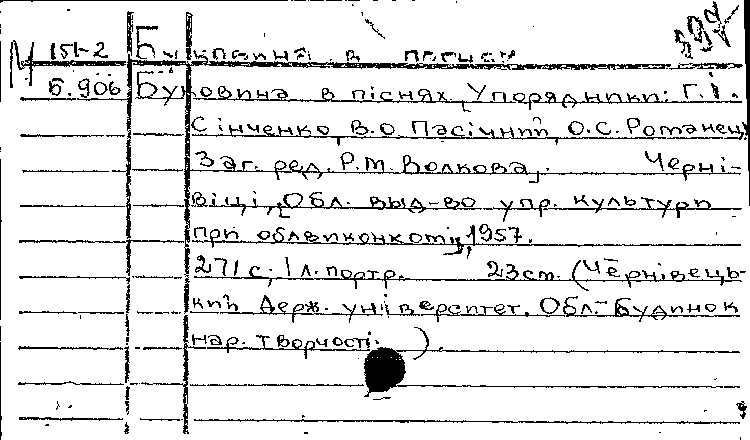 397
М 151-2 Буковина в піснях
Б.906 Буковина в піснях, [Упорядники: Г.І.
Сінченко, В.О. Пасічний, О.С. Романець
Заг. ред. Р.М. Волкова]. Черні-
віці, [Обл. выд-во упр. культури
при облвиконкомі], 1957.
271 с; 1 л. портр. 23 см. (Чернівець-
кий Держ. університет. Обл. Будинок
нар. творчості).